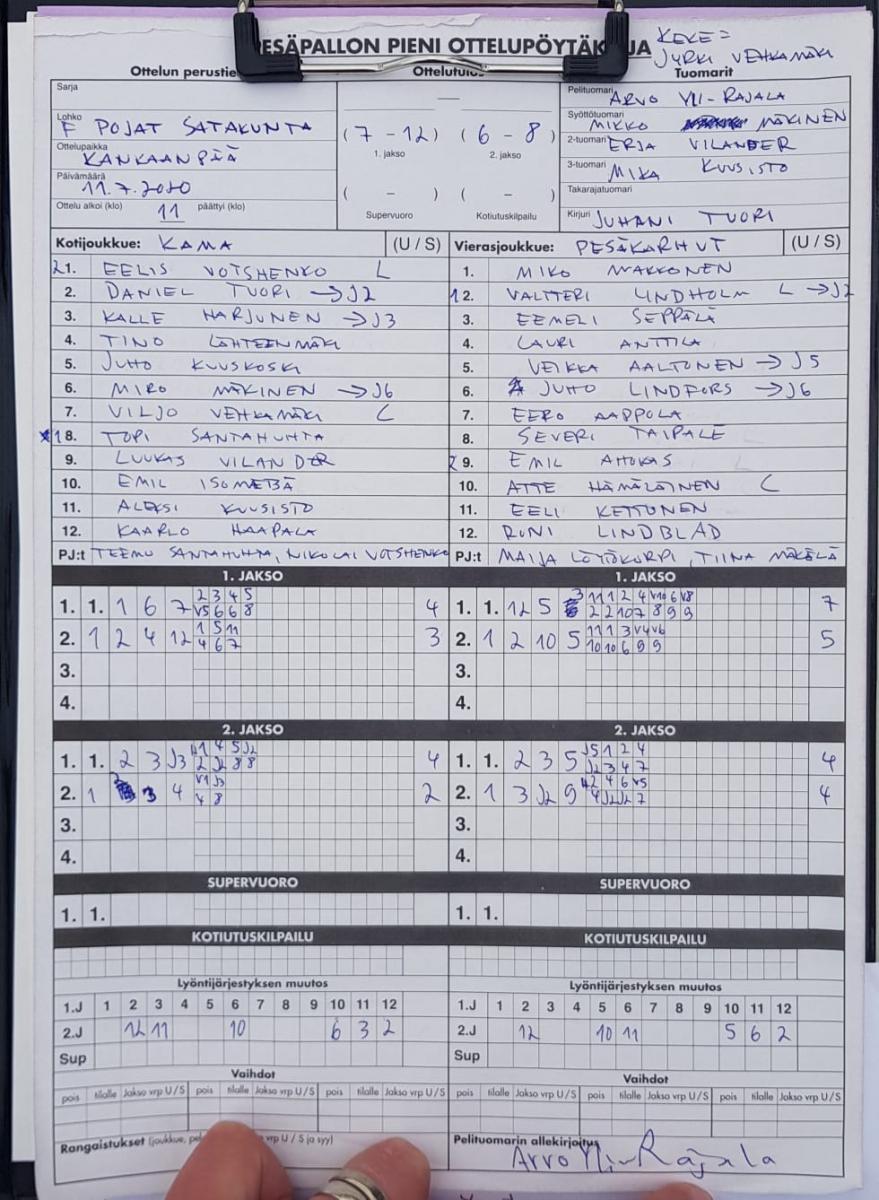 KEKE =
JYRKI VEHKAMÄKI
PESÄPALLON PIENI OTTELUPÖYTÄKIRJA
Ottelun perustie
Ottelutulos
Tuomarit
Sarja
Lohko F POJAT SATAKUNTA
Ottelupaikka KANKAANPÄÄ
Päivämäärä 11.7.2020
Ottelu alkoi (klo) 11 päättyi (klo)
( 7 - 12 ) ( 6 - 8 )
1. jakso 2. jakso
( - ) ( - )
Supervuoro Kotiutuskilpailu
Pelituomari ARVO YLI-RAJALA
Syöttötuomari MIKKO MÄKINEN
2-tuomari ERJA VILANDER
3-tuomari MIKA KUUSISTO
Takarajatuomari
Kirjuri JUHANI TUORI
Kotijoukkue: KAMA (U / S)
21. EELIS VOTSHENKO L
2. DANIEL TUORI → J2
3. KALLE HARJUNEN → J3
4. TINO LÄHTEENMÄKI
5. JUHO KUUSKOSKI
6. MIRO MÄKINEN → J6
7. VILJO VEHKAMÄKI L
18. TOPI SANTAHUHTA
9. LUUKAS VILANDER
10. EMIL ISOMETSÄ
11. ALEKSI KUUSISTO
12. KAARLO HAAPALA
PJ:t TEEMU SANTAHUHTA, NIKOLAI VOTSHENKO
Vierasjoukkue: PESÄKARHUT (U / S)
1. MIKO MAKKONEN
12. VALTTERI LINDHOLM L → J2
3. EEMELI SEPPÄLÄ
4. LAURI ANTTILA
5. VEIKKA AALTONEN → J5
6. JUHO LINDFORS → J6
7. EERO AAPPOLA
8. SEVERI TAIPALE
2 9. EMIL AHOKAS
10. ATTE HÄMÄLÄINEN L
11. EELI KETTUNEN
12. RONI LINDBLAD
PJ:t MAIJA LÖYTÖKORPI, TIINA MÄKELÄ
1. JAKSO
1. 1. 1 6 7 2 3 4 5 4
V5 6 6 8
2. 1 2 4 12 1 5 11 3
4 6 7
3.
4.
1. JAKSO
1. 1. 12 5 3 11 1 2 4 V10 6 V8 7
2 2 10 7 8 9 9
2. 1 2 10 5 11 1 3 V4 V6 5
10 10 6 9 9
3.
4.
2. JAKSO
1. 1. 2 3 J3 1 4 5 J2 4
2 J2 8 8
2. 1 3 4 V1 J3 2
4 8
3.
4.
2. JAKSO
1. 1. 2 3 5 J5 1 2 4 4
J2 3 4 7
2. 1 3 J2 9 2 4 6 V5 4
4 J2 J2 7
3.
4.
SUPERVUORO
1. 1.
SUPERVUORO
1. 1.
KOTIUTUSKILPAILU
KOTIUTUSKILPAILU
Lyöntijärjestyksen muutos
1.J 1 2 3 4 5 6 7 8 9 10 11 12
2.J 12 11 10 6 3 2
Sup
Lyöntijärjestyksen muutos
1.J 1 2 3 4 5 6 7 8 9 10 11 12
2.J 12 10 11 5 6 2
Sup
Vaihdot
pois tilalle Jakso vrp U / S pois tilalle Jakso vrp U / S pois tilalle Jakso vrp U / S
Vaihdot
pois tilalle Jakso vrp U / S pois tilalle Jakso vrp U / S pois tilalle Jakso vrp U / S
Rangaistukset (joukkue, vrp U / S ja syy)
Pelituomarin allekirjoitus
Arvo Yli-Rajala